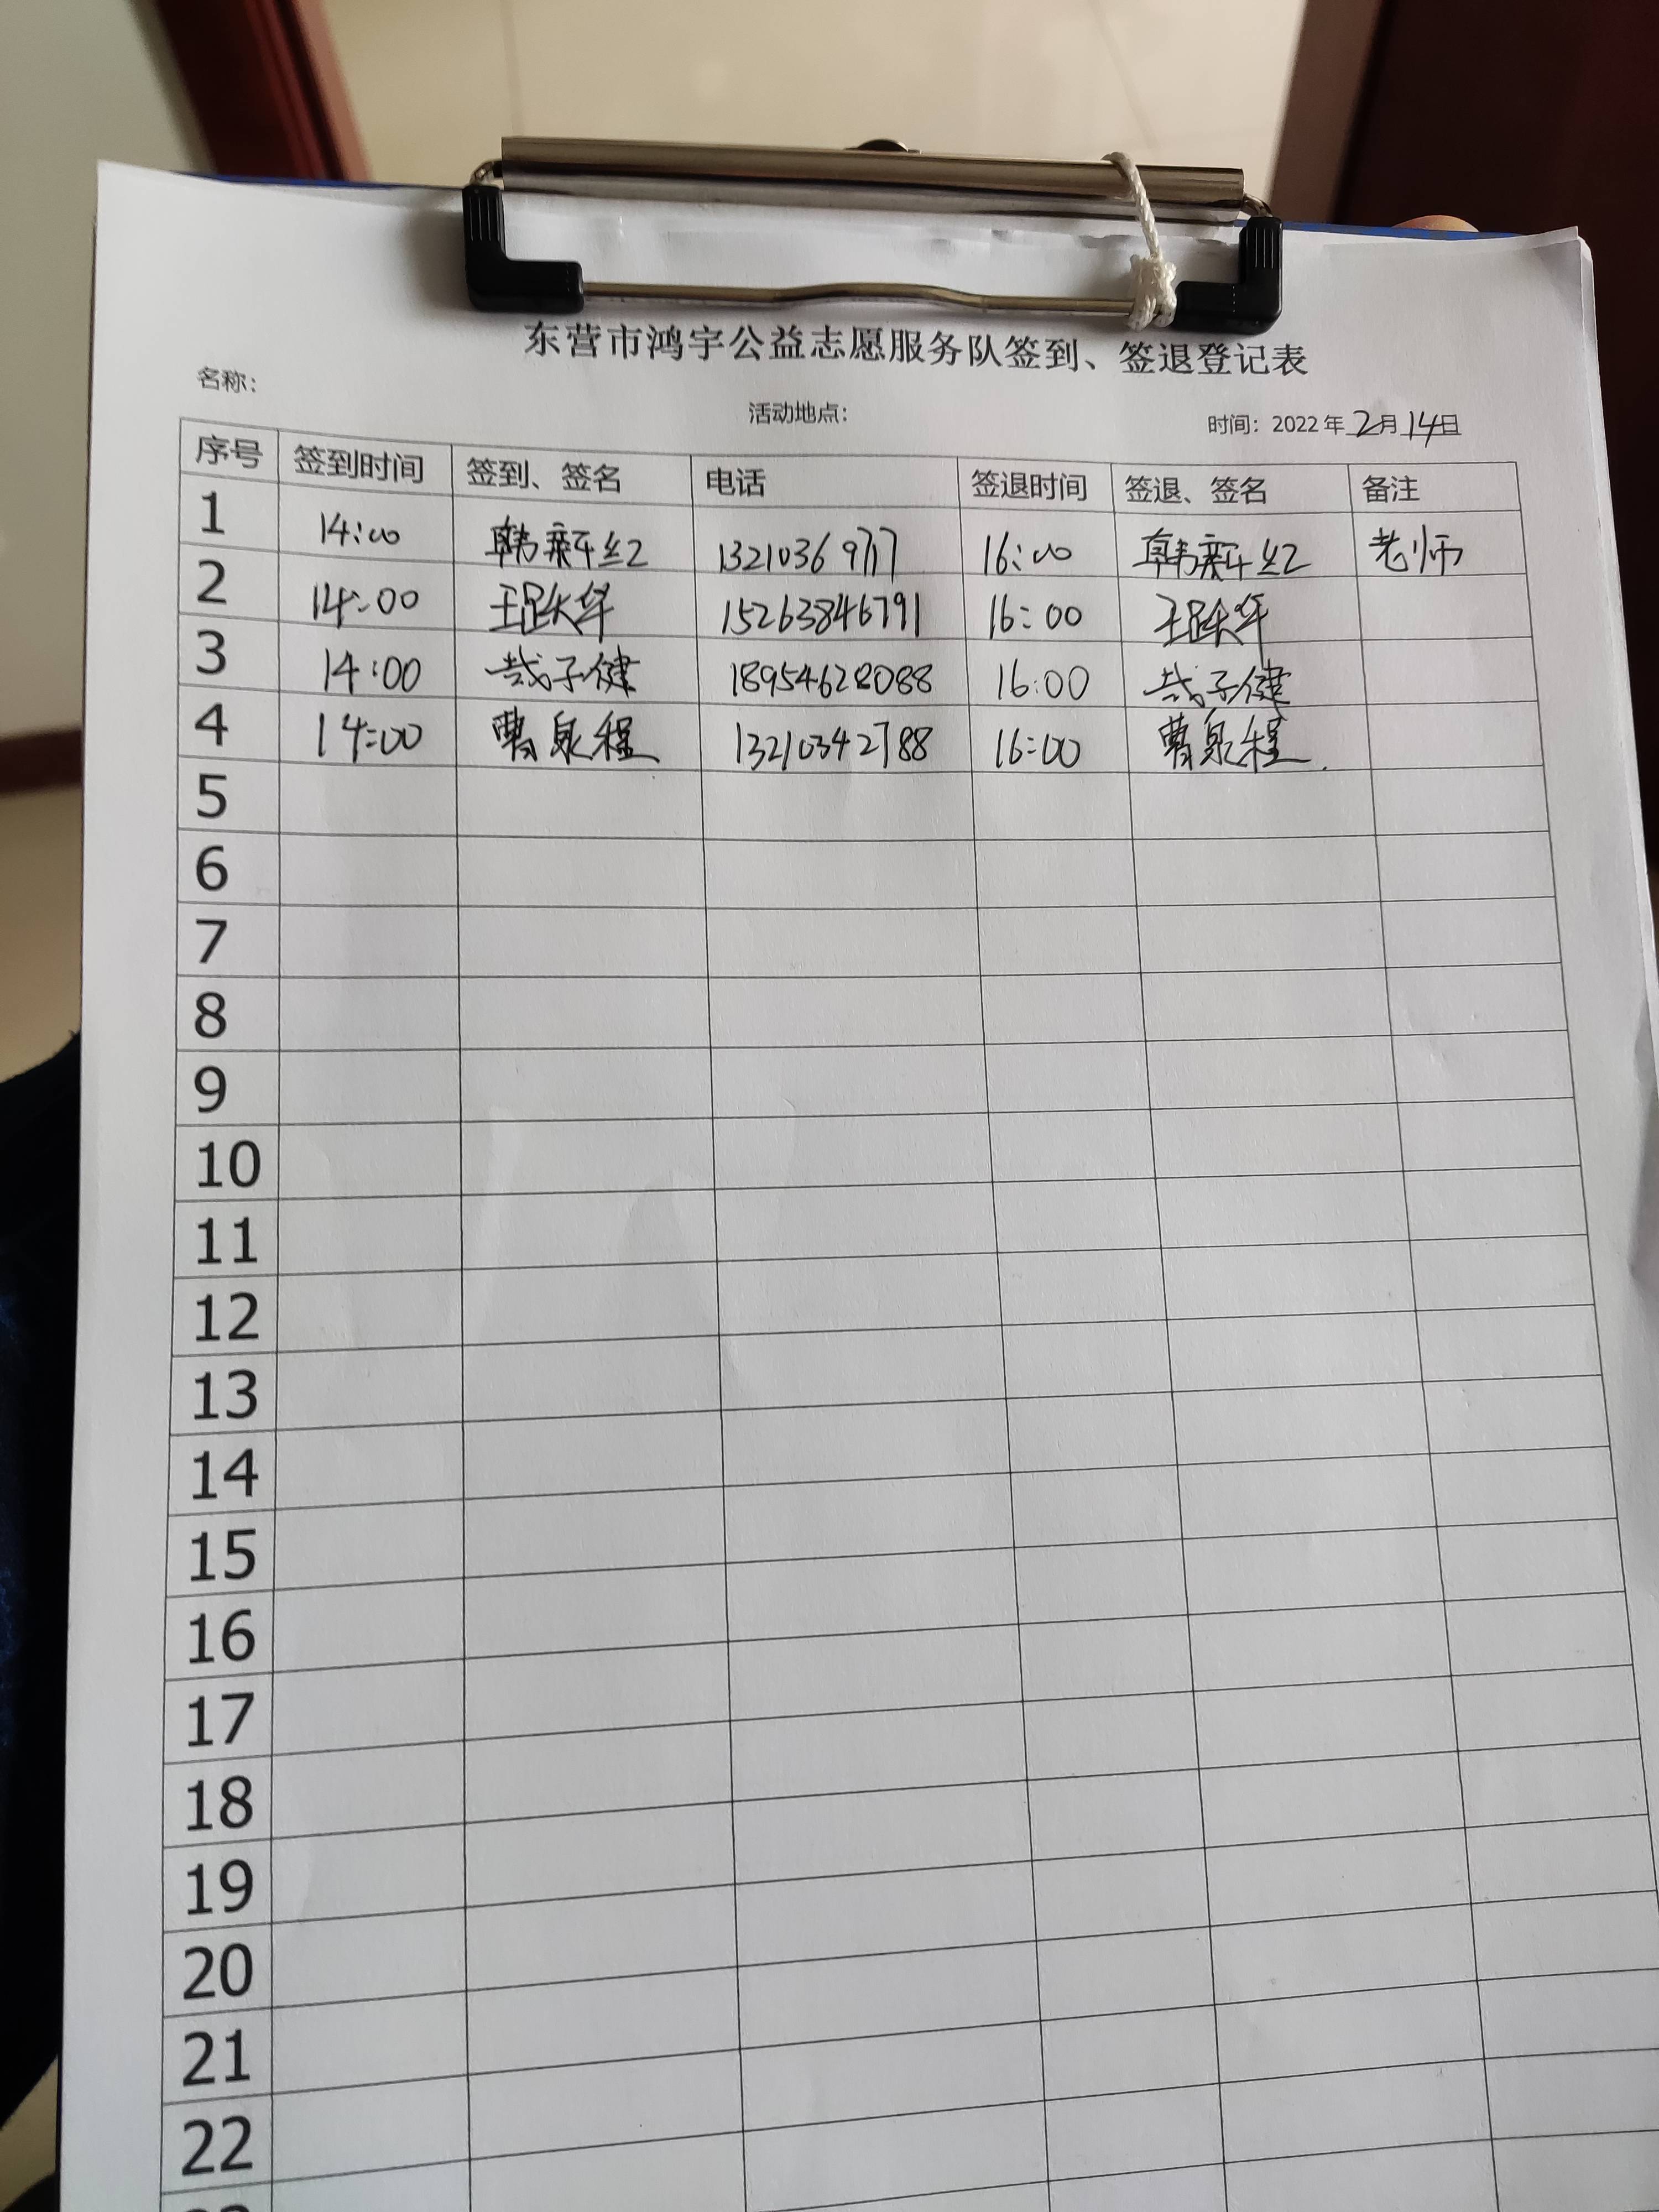 东营市鸿宇公益志愿服务队签到、签退登记表
名称：
活动地点：
时间：2022年2月14日
序号 签到时间 签到、签名 电话 签退时间 签退、签名 备注
1 14:00 韩新红 1321036 16:00 韩新红 老师
2 14:00 王跃华 15263846791 16:00 王跃华
3 14:00 子健 18954628088 16:00 子健
4 14:00 曹泉程 13210342788 16:00 曹泉程
5
6
7
8
9
10
11
12
13
14
15
16
17
18
19
20
21
22